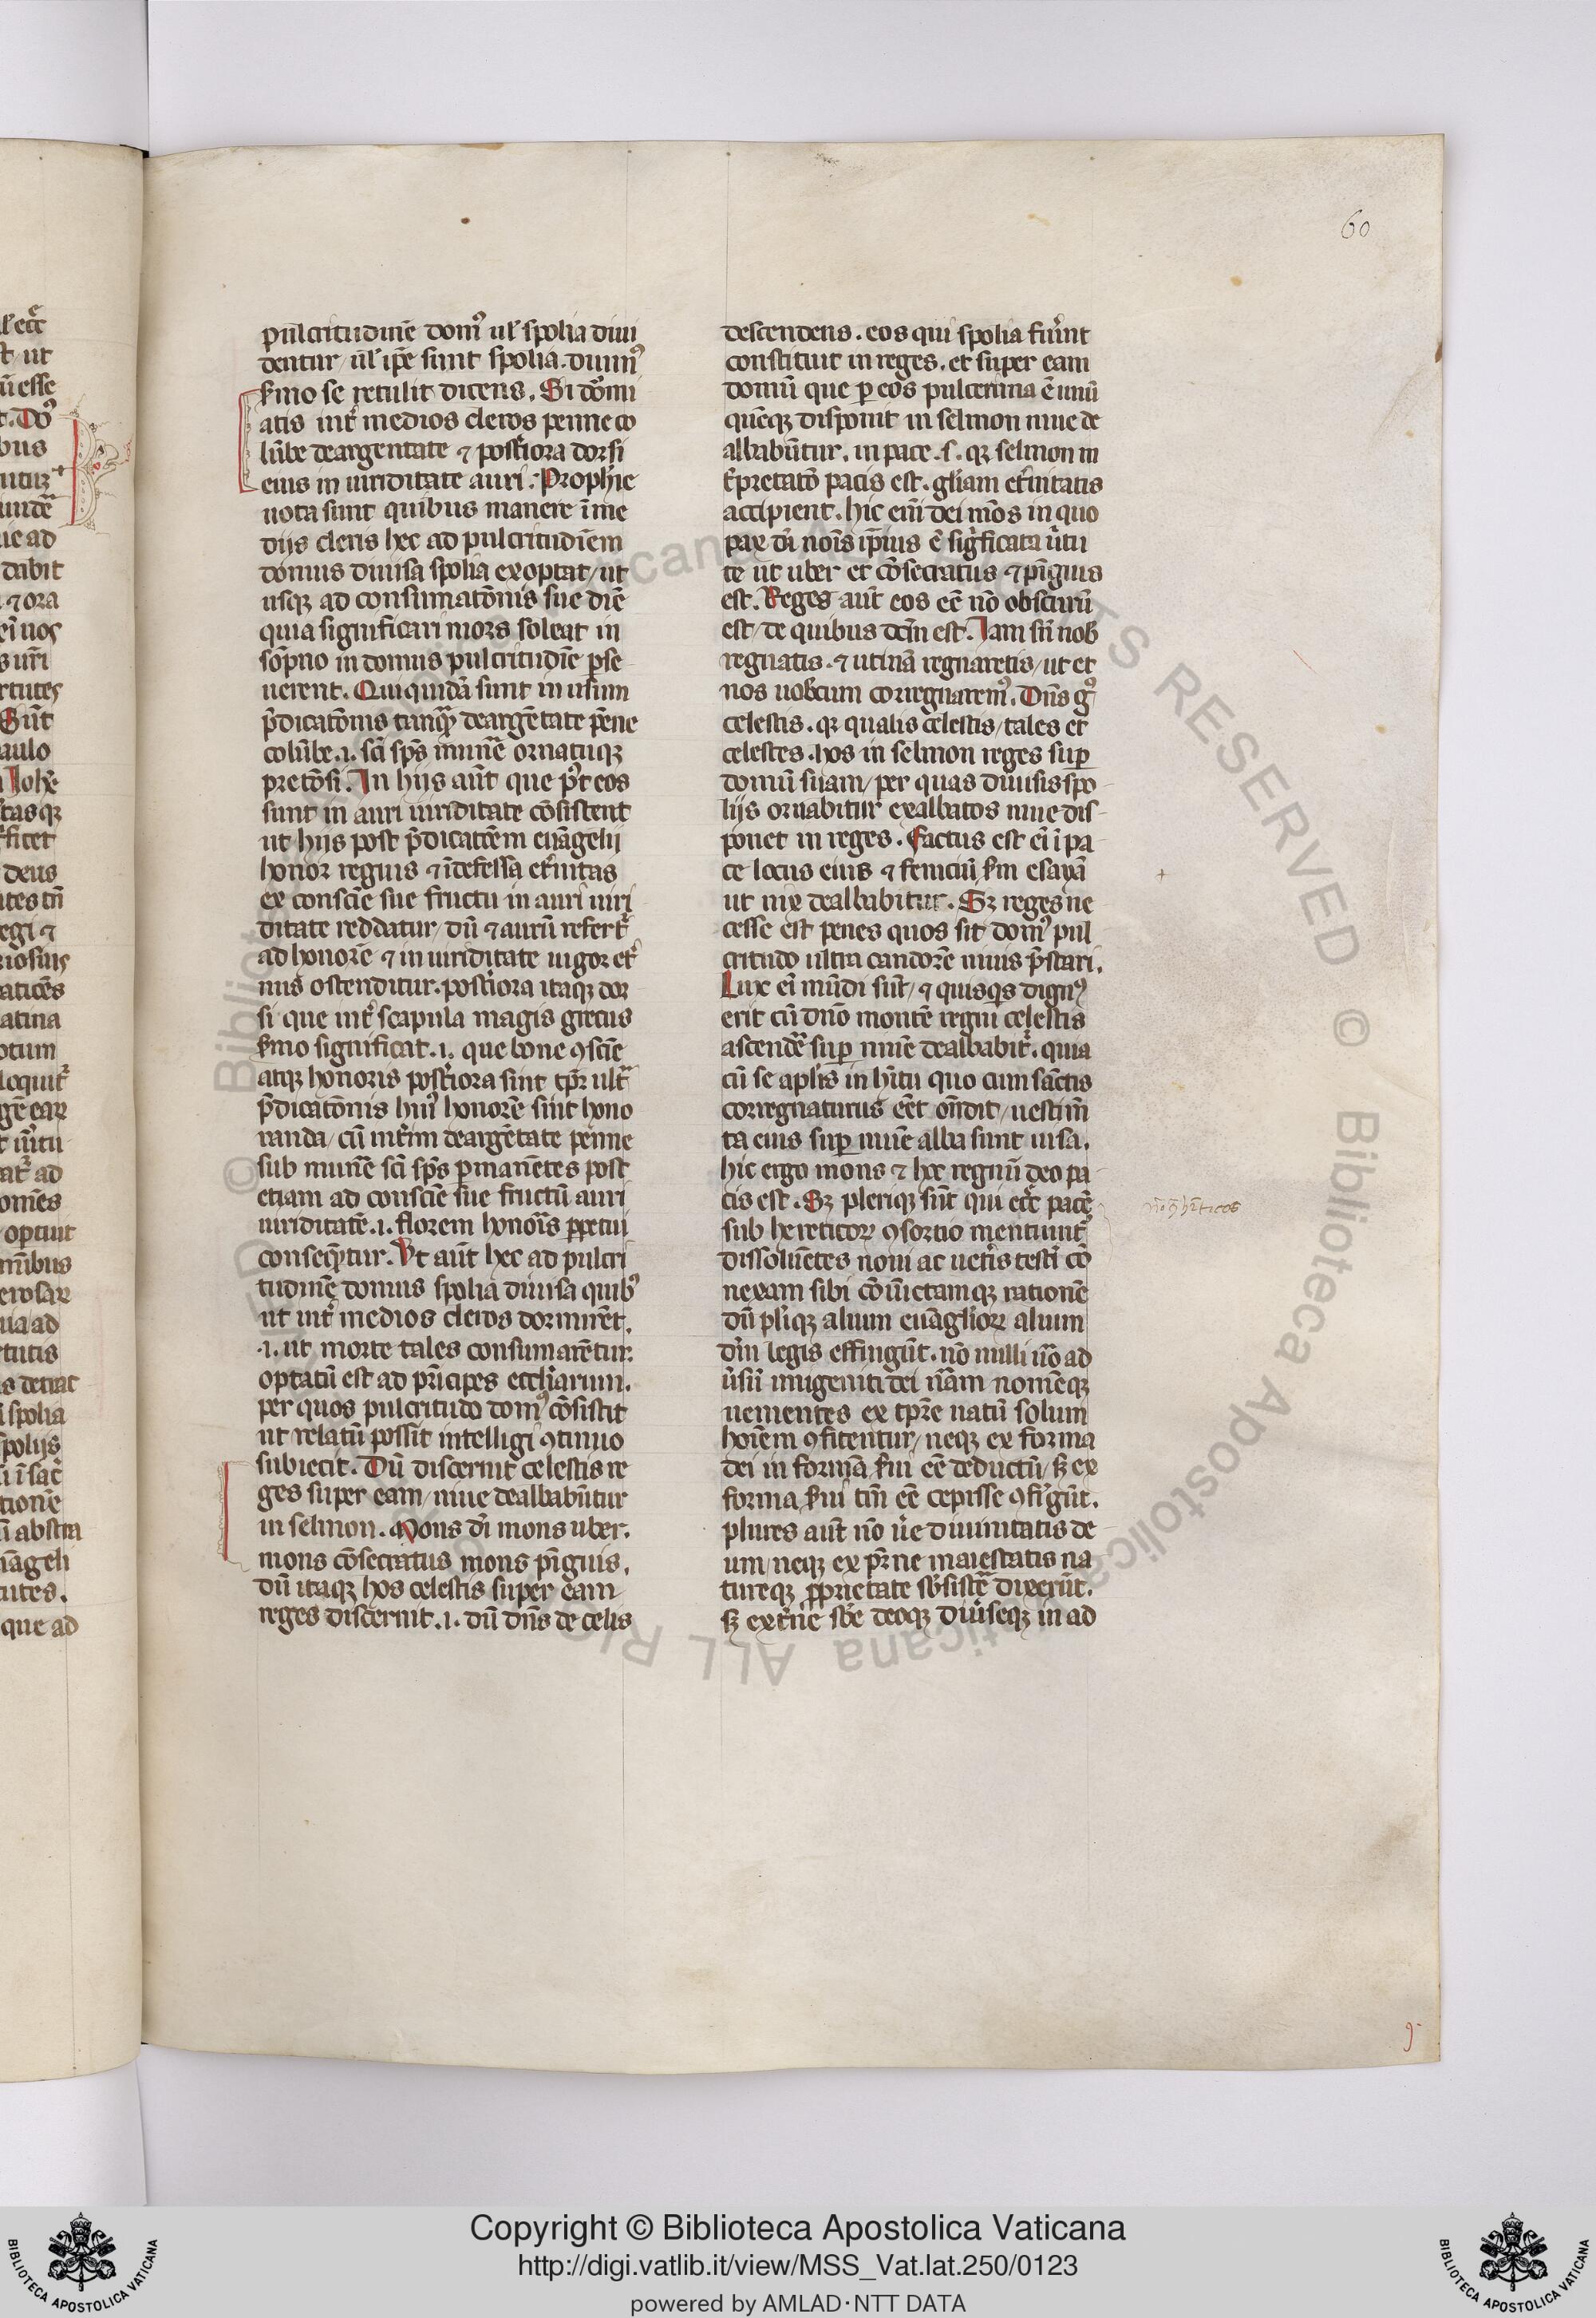 60
pulcritudinē domꝰ ul̄ spolia diui
dentur / ul̄ ip̄e sunt spolia. diuinꝰ
s̄mo se retulit dicens. Si dōmi
atis int̄ medios cleros penne co
lūbe deargentate ⁊ post̄iora dorsi
eius in uiriditate auri. Prophīe
uota sunt quibus manere ī me
dijs cleris hec ad pulcritudīem
domus diuisa spolia exoptat / ut
usqꝫ ad consumatōnis sue diē
quia significari mors soleat in
sōpno in domus pulcritudīe p̱se
uerent. Qui quidā sunt in usum
p̄dicatōnis tanqᷓ deargētate pēne
colūbe .i. sc̄i sp̄s munē ornatuqꝫ
pretōsi. In hijs aūt que pꝰt eos
sunt in auri uiriditate cōsistent
ut hijs post p̄dicatōem euāgelij
honor regius ⁊ īdefessa et̄nitas
ex consciē sue fructu in auri uiri
ditate reddatur / dū ⁊ aurū refert᷑
ad honorē ⁊ in uiriditate uigor et̄
nus ostenditur. post̄iora itaqꝫ dor
si que int̄ scapula magis grecus
s̄mo significat .i. que bone ꝯsciē
atqꝫ honoris post̄iora sint tp̄r ult᷑
p̄dicatōnis huiꝰ honorē sint hono
randa / cū int̄im deargētate penne
sub munē sc̄i sp̄s p̱manētes post
etiam ad consciē sue fructū auri
uiriditatē .i. florem honoīs p̱petui
conseqᷓtur. Vt aūt hec ad pulcri
tudinē domus spolia diuisa quibꝰ
ut int̄ medios cleros dormirēt.
.i. ut morte tales consumarētur.
optatū est ad p̄ncipes eccl̄iarum.
per quos pulcritudo domꝰ cōsistit
ut relatū possit intelligi ꝯtinuo
subiecit. Dū discernit celestis re
ges super eam / niue dealbabūtur
in selmon. Mons dī mons uber.
mons cōsecratus mons pīguis.
dū itaqꝫ hos celestis super eam
reges discernit .i. dū dn̄s de celis
descendens. eos qui spolia fūnt
constituit in reges. et super eam
domū que p̱ eos pulcerima ē unū
quēqꝫ disponit in selmon niue de
albabūtur. in pace .s. qꝫ selmon in
t̄pretatō pacis est. gl̄iam et̄nitatis
accipient. hic eīn dei mōs in quo
pax dī noīs ip̄ius ē sigᷓficata ūtu
te ut uber et cōsecratus ⁊ pīguis
est. Reges aūt eos eē nō obscurū
est / de quibus dc̄m est. Iam sn̄ nob̄
regnatis. ⁊ utinā regnaretis / ut et
nos uobcum corregnaremꝰ. Dn̄s gͦ
celestis. qꝛ qualis celestis / tales et
celestes. hos in selmon reges sup̱
domū suam / per quas diuisis spo
lijs ornabitur exalbatos niue dis
ponet in reges. Factus est eī ī pa
ce locus eius ⁊ feniciū s̄m esayā
ut nix dealbabitur. Sꝫ reges ne
cesse est penes quos sit domꝰ pul
critudo ultra candorē niuis p̄stari.
Lux eī mūdi sūt / ⁊ quisqͥs dignꝰ
erit cū dn̄o montē regni celestis
ascendē sup̱ niuē dealbabit᷑. quia
cū se apl̄is in hītu quo cum sāctis
corregnaturus eēt on̄dit / uestim̄
ta eius sup̱ niuē alba sunt uisa.
hic ergo mons ⁊ hoc regnū deo pa
cis est. Sꝫ pleriqꝫ sūt qui ecc̄e pacē
sub hereticoꝝ ꝯsortio mentiunt᷑
dissoluētes noui ac uet̄is testī cō
nexam sibi cōiūctamqꝫ rationē
dū pl̄iqꝫ alium euāglioꝝ alium
dīm legis effingūt. nō nulli ūo ad
ūsū unigeniti dei nām nomēqꝫ
uementes ex tp̄re natū solum
hoīem ꝯfitentur / neqꝫ ex forma
dei in formā s̄ui eē deductū / sꝫ ex
forma s̄ui tm̄ eē cepisse ꝯfīgūt.
plures aūt nō ūe diuinitatis de
um / neqꝫ ex p̄rne maiestatis na
tureqꝫ p̱prietate sb̄sistē dixerūt.
sꝫ ext̄ne sb̄e deoqꝫ diūseqꝫ in ad
Copyright © Biblioteca Apostolica Vaticana
http://digi.vatlib.it/view/MSS_Vat.lat.250/0123
powered by AMLAD·NTT DATA